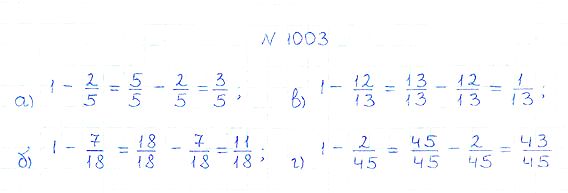 N 1003
а) 1 - 2/5 = 5/5 - 2/5 = 3/5 ; в) 1 - 12/13 = 13/13 - 12/13 = 1/13 ;
б) 1 - 7/18 = 18/18 - 7/18 = 11/18 ; г) 1 - 2/45 = 45/45 - 2/45 = 43/45